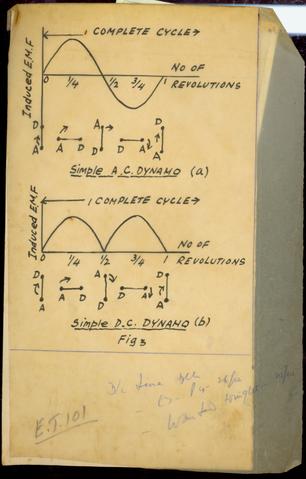 1 COMPLETE CYCLE→
Induced E.M.F
0 1/4 1/2 3/4 1
NO OF
REVOLUTIONS
D A A D
A D D A D A
Simple A.C. DYNAMO (a)
1 COMPLETE CYCLE→
Induced E.M.F
0 1/4 1/2 3/4 1
NO OF
REVOLUTIONS
D A D
A D A D D A A
Simple D.C. DYNAMO (b)
Fig 3
E.T.101